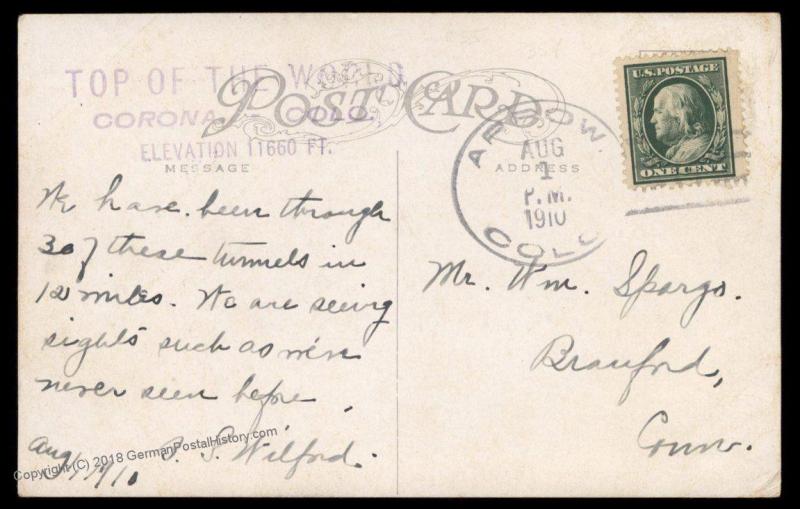 TOP OF THE WORLD
CORONA COLO.
ELEVATION 11660 FT.
POST CARD
MESSAGE
ADDRESS
ARROW.
AUG
1
P.M.
1910
COLO
U.S. POSTAGE
ONE CENT
We have been through
30 of these tunnels in
12 miles. We are seeing
sights such as we've
never seen before.
Aug 1, 1910
S. Wilford.
Mr. Wm. Spargo.
Branford,
Conn.
Copyright (C) 2018 GermanPostalHistory.com